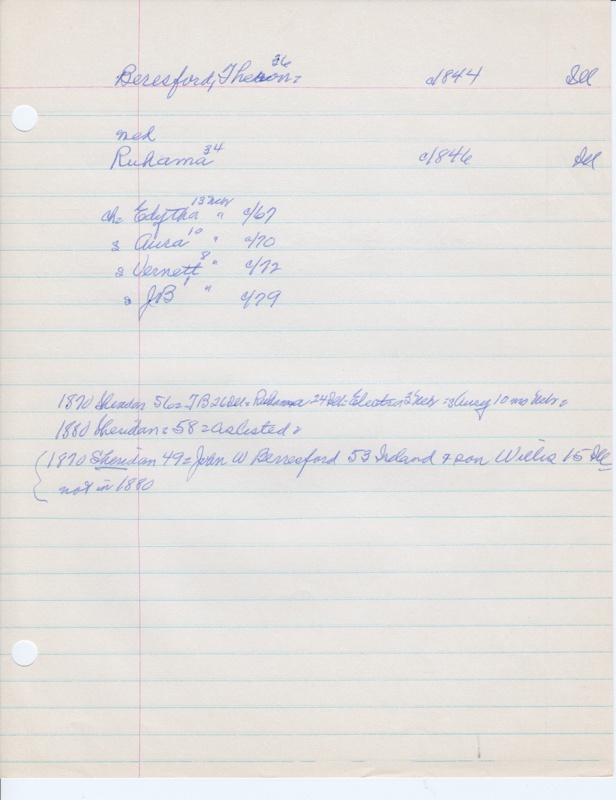 Beresford, Theron = 36 c/1844 Ill
md
Ruhama 34 c/1846 Ill
ch = Edytha 13 Nebr c/67
" Aura 10 " c/70
" Vernett 8 " c/72
" JB 1 " c/79
1870 Sheridan 56 = TB 26 Ill = Ruhama 24 Ill = 3 Nebr = Aury 10 mo Nebr =
1880 Sheridan = 58 = as listed =
(1870 Sheridan 49 = John W Berresford 53 Ireland + son Willis 15 Ill
not in 1880